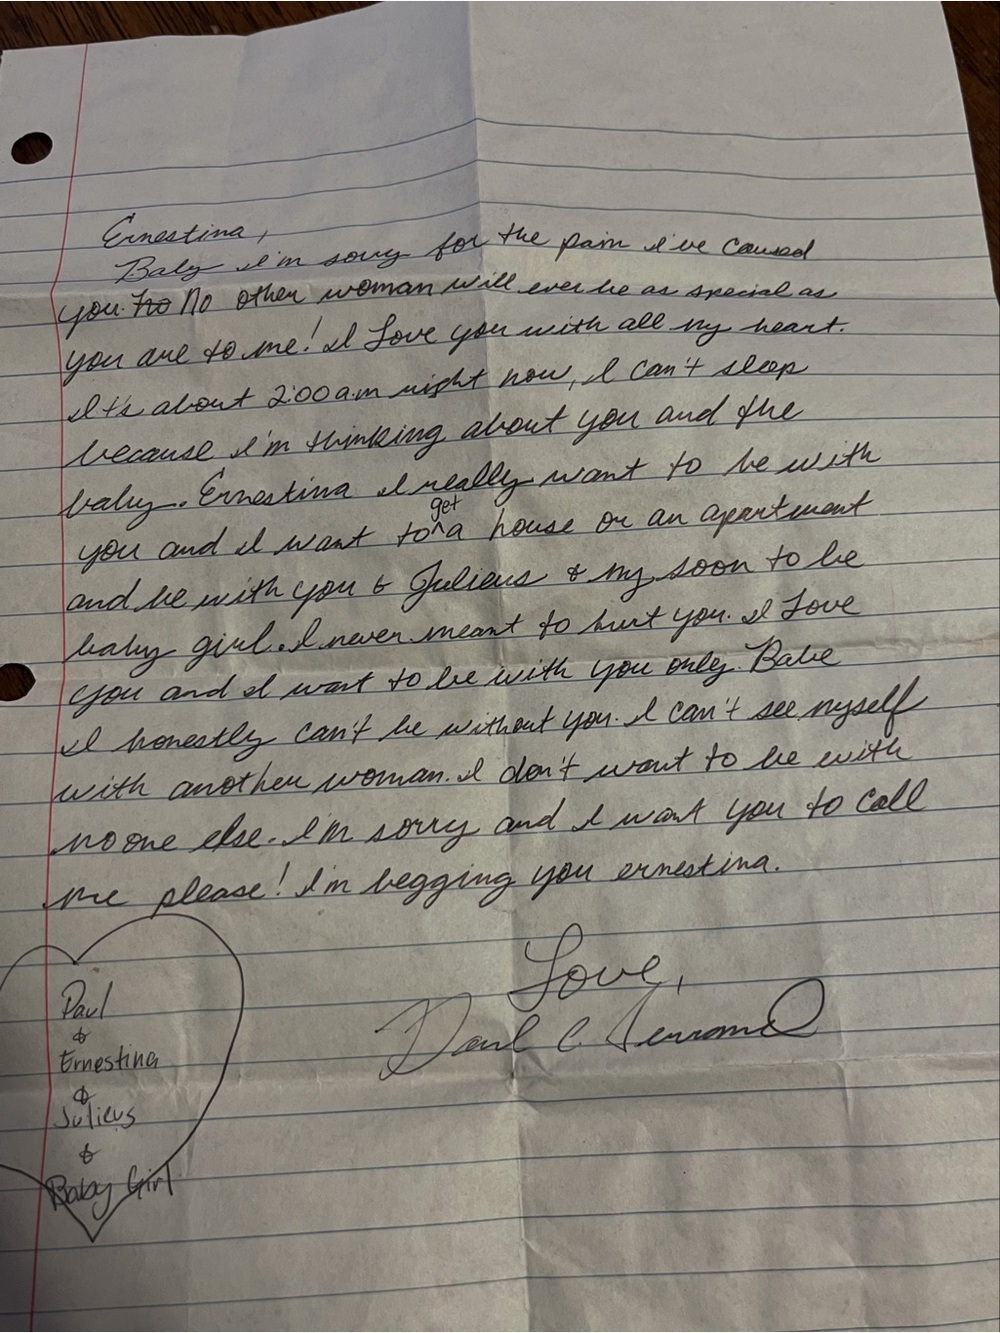 Ernestina,
Baby I'm sorry for the pain I've caused
you. No other woman will ever be as special as
you are to me! I Love you with all my heart.
It's about 2:00 a.m right now, I can't sleep
because I'm thinking about you and the
baby. Ernestina I really want to be with
you and I want to get a house or an apartment
and be with you & Julieus & my soon to be
baby girl. I never meant to hurt you. I Love
you and I want to be with you only. Babe
I honestly can't be without you. I can't see myself
with another woman. I don't want to be with
no one else. I'm sorry and I want you to call
me please! I'm begging you ernestina.
Love,
Paul C.
Paul
&
Ernestina
&
Julieus
&
Baby Girl